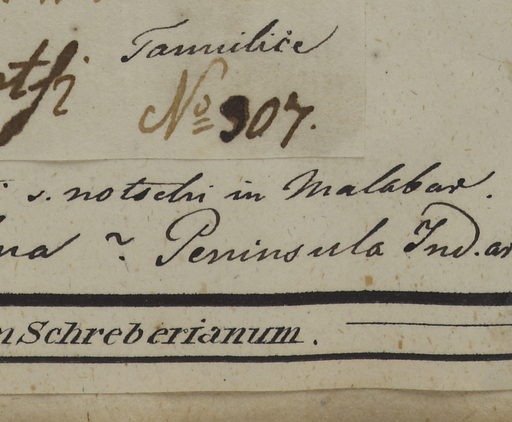 Tamulice
No 307.
s. notschi in Malabar.
Peninsula Ind. or
Schreberianum.